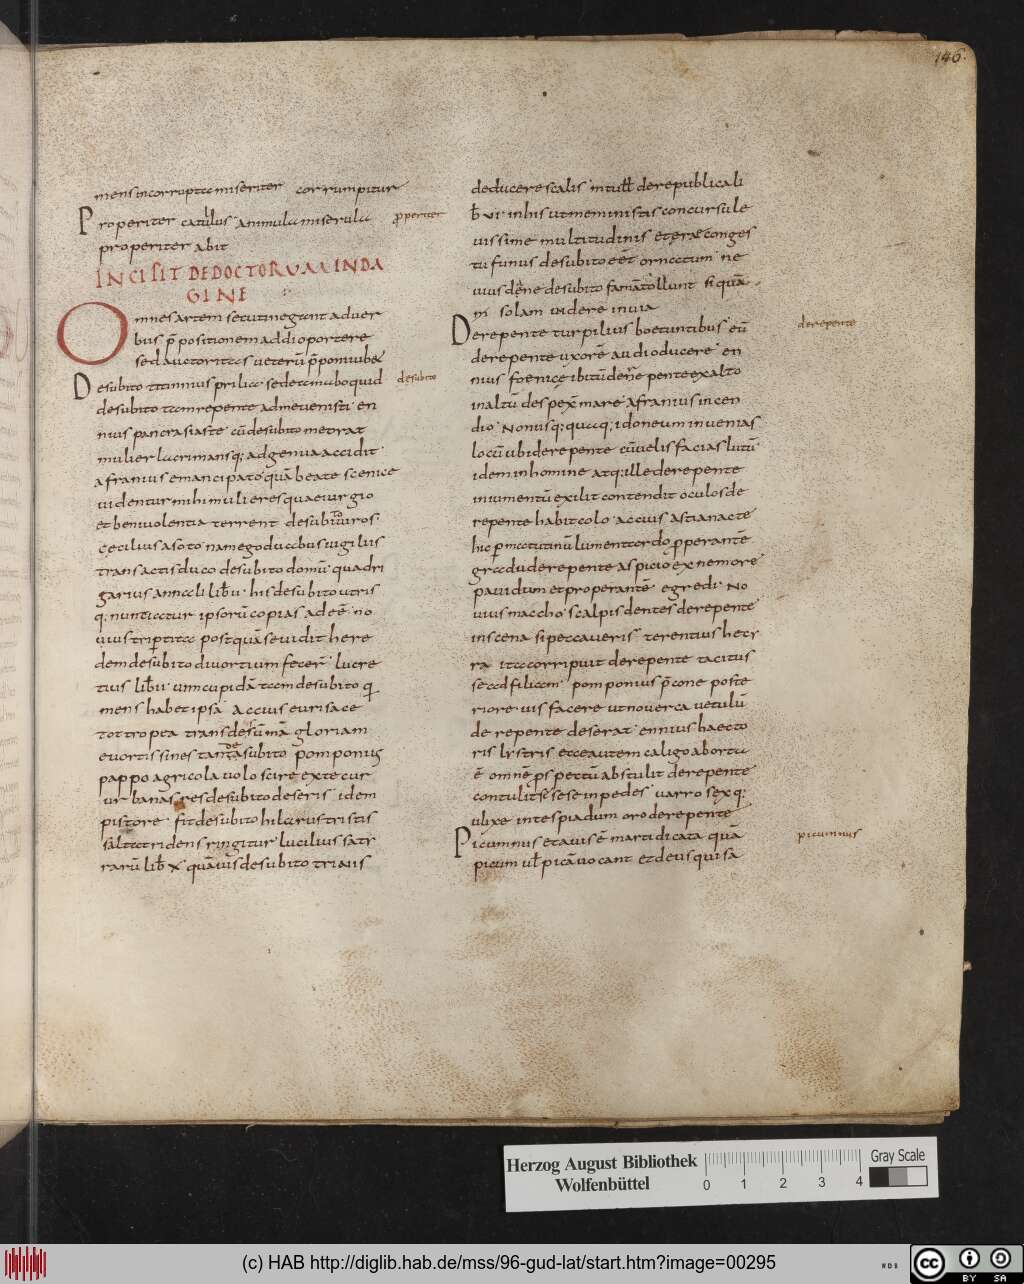 146.
mens incorrupta miseriter corrumpitur
Properiter catullus animula miserula
properiter abit
properiter
INCISIT DE DOCTORUM INDA
GINE
Omnes artem secuti negant adver
bus p̄positionem addi oportere
sed auctoritas veterū p̄poni iubet
Desubito titinnius prilia sed eta mubo quid
desubito
desubito tam repente ad me venisti en
nius pancrasiaste cū desubito me trat
mulier lacrimansq; ad genua accidit
afranius emancipato quā beate scenice
videntur mihi mulieres quae iurgio
et benivolentia terrent desubito viros
cecilius asoto nam ego duabus vigiliis
transactis duco desubito domū quadri
garius annali lib̄ his desubito utris
q; nuntiatur ipsorū copias adeē no
vius tripertita postquā sevidit here
dem desubito divortium fecer̄ lucre
tius lib̄ vim cupidā tam desubito q
mens habet ipsā Accius eurisace
tot tropea transdesūmā gloriam
evortis sines tanta desubito pomponius
pappo agricola volo scire ex te cur
urbanas res desubito deseris idem
pistore fit desubito hilarus tristis
saltat ridens ringitur lucilius satr
rarū lib̄ x quāvis desubito trians
deducere scalis in tull̄ de republica li
b̄ vi in his ut meministis concursu le
vissime multitudinis et aere conges
tu funus desubito eēt ornatum ne
vius dene desubito famā tollunt si quā
m solam videre in via
Derepente turpilius boetuntibus eū
derepente
derepente uxorē audio ducere en
nius foenice ibi tū derepente ex alto
in altū despexit mare afranius incen
dio Non usq; quaq; idoneum invenias
locū ubi derepente cū velis facias lutū
idem in homine atq; ille derepente
inmentū exilit contendit oculos de
repente habit colo accius astianacte
hic p matutinū lumen tardo properantē
gradu derepente aspicio ex nemore
pavidum et properantē egredi No
vius maccho scalpis dentes derepente
in scena si peccaveris terentius hecr
ra ita corripuit derepente tacitus
sead filiam pomponius p̄cone poste
riore vis facere ut noverca vetulū
derepente deserat ennius haecto
ris lystris ecce autem caligo aborta
ē omnē pspectū abstulit derepente
contulit sese in pedes varro sexq;
ulixe inte spiadum oro derepente
Picumnus et avis ē marti dicata quā
picumnus
picum vl̄ picā vocant et deus qui sa
Herzog August Bibliothek
Wolfenbüttel
0 1 2 3 4
Gray Scale
(c) HAB http://diglib.hab.de/mss/96-gud-lat/start.htm?image=00295
WDB
CC BY SA